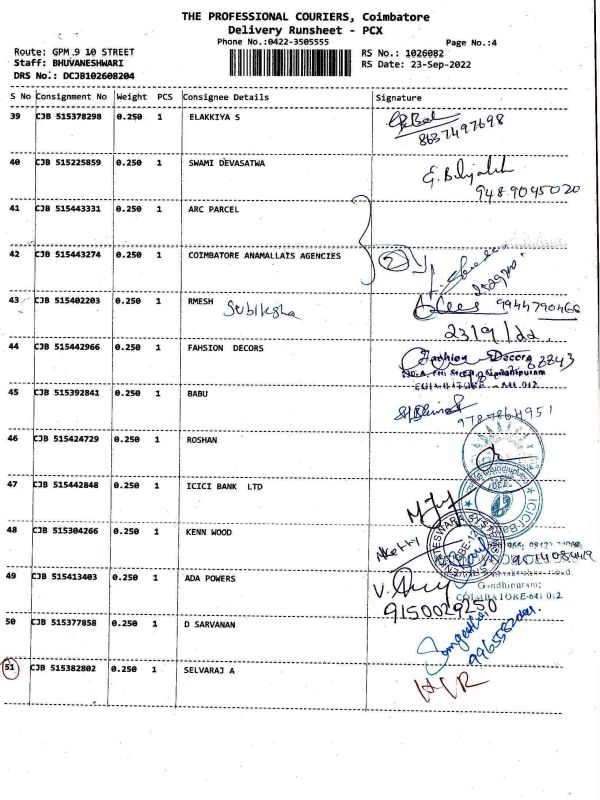 THE PROFESSIONAL COURIERS, Coimbatore
Delivery Runsheet - PCX
Phone No.:0422-3505555
Page No.:4
Route: GPM 9 10 STREET
RS No.: 1026082
Staff: BHUVANESHWARI
RS Date: 23-Sep-2022
DRS No.: DCJB102608204
S No Consignment No Weight PCS Consignee Details Signature
39 CJB 515378298 0.250 1 ELAKKIYA S
8637497698
40 CJB 515225859 0.250 1 SWAMI DEVASATWA
948 9045020
41 CJB 515443331 0.250 1 ARC PARCEL
42 CJB 515443274 0.250 1 COIMBATORE ANAMALLAIS AGENCIES
2
43 CJB 515402203 0.250 1 RMESH Subiksha
9944790466
23/9/22
44 CJB 515442966 0.250 1 FAHSION DECORS
Fashion Decors
45 CJB 515392841 0.250 1 BABU
46 CJB 515424729 0.250 1 ROSHAN
47 CJB 515442848 0.250 1 ICICI BANK LTD
ICICI Bank
48 CJB 515304266 0.250 1 KENN WOOD
49 CJB 515413403 0.250 1 ADA POWERS
Gandhipuram,
COIMBATORE-641 012.
9150029250
50 CJB 515377858 0.250 1 D SARVANAN
51 CJB 515382802 0.250 1 SELVARAJ A